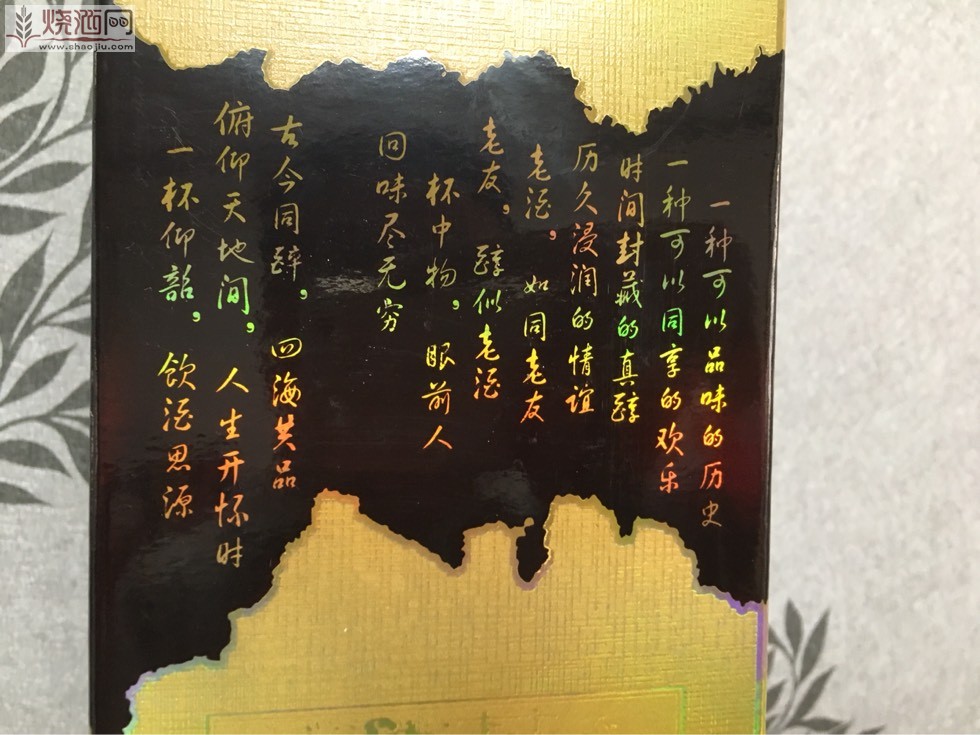 烧酒网
www.shaojiu.com
一种可以品味的历史
一种可以同享的欢乐
时间封藏的真醇
历久浸润的情谊
老酒，如同老友
老友，醇似老酒
杯中物，眼前人
回味尽无穷
古今同醉，四海共品
俯仰天地间，人生开怀时
一杯仰韶，饮酒思源